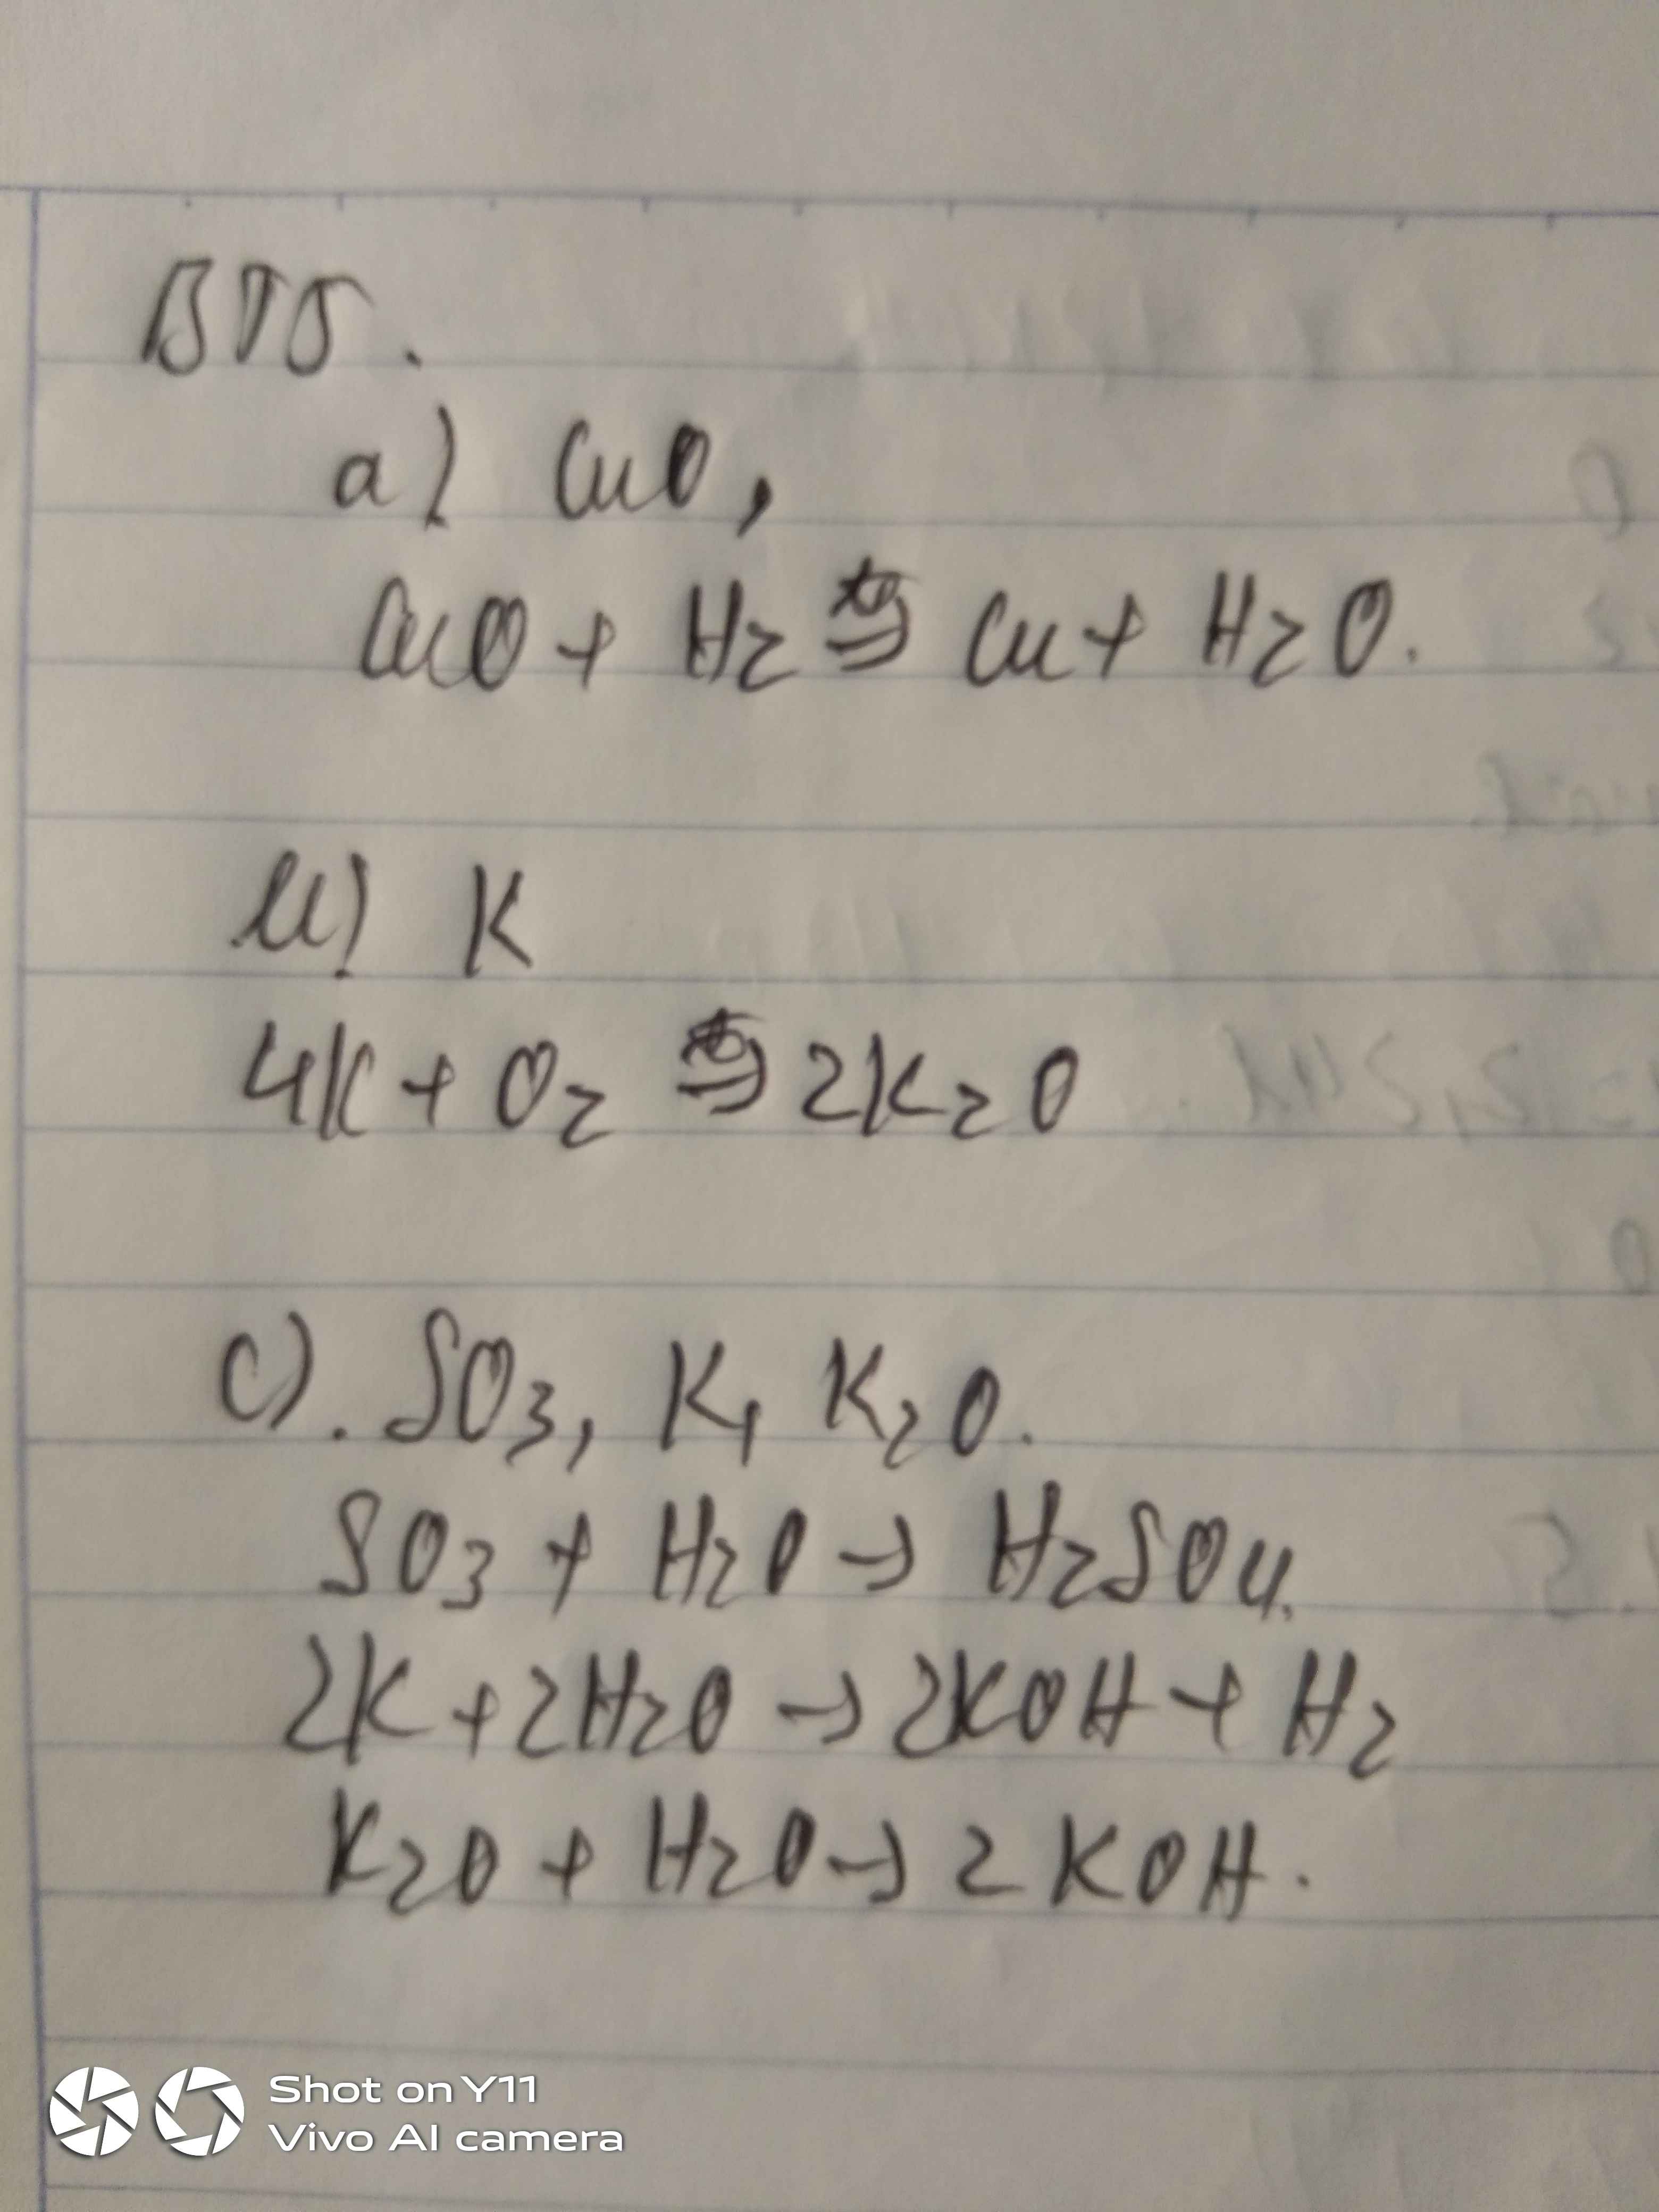 BT5.
a) CuO,
CuO + H2 t° → Cu + H2O.
b) K
4K + O2 t° → 2K2O
c). SO3, K, K2O.
SO3 + H2O → H2SO4.
2K + 2H2O → 2KOH + H2
K2O + H2O → 2KOH.
Shot on Y11
Vivo AI camera